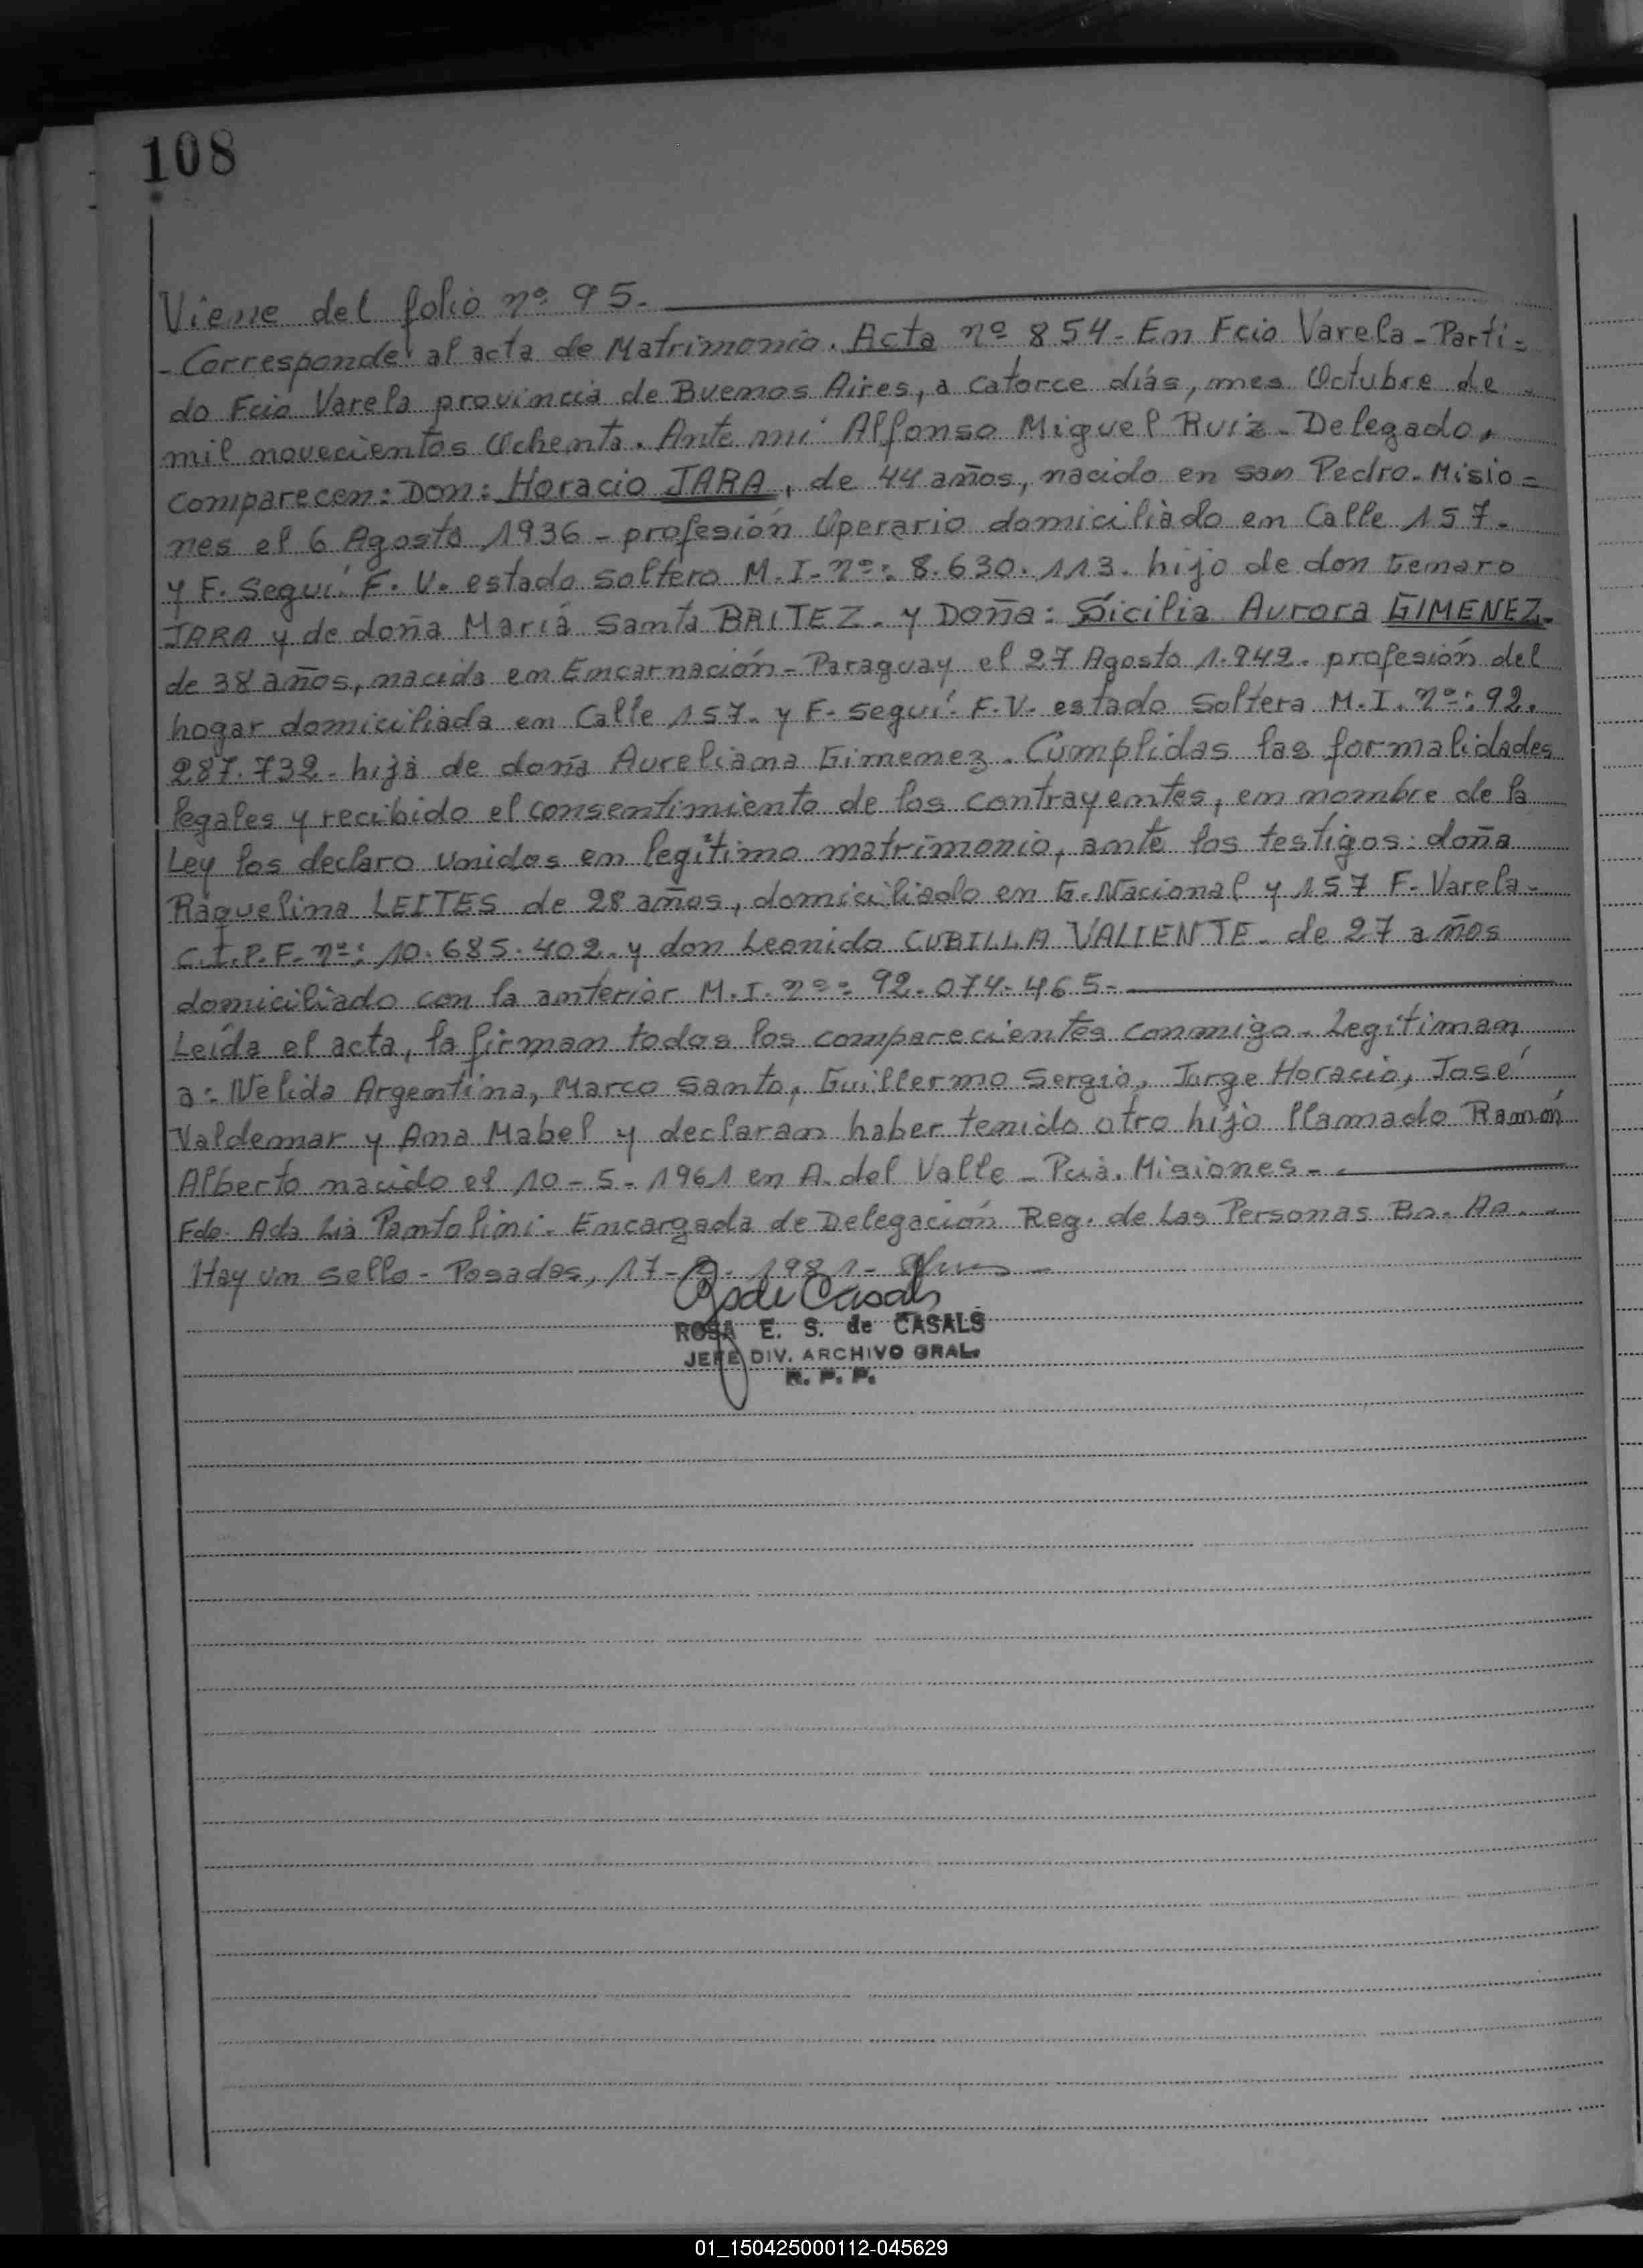 108
Viene del folio nº 95.
- Corresponde al acta de Matrimonio. Acta nº 854 - En Fcio Varela - Parti=
do Fcio Varela provincia de Buenos Aires, a catorce días, mes Octubre de
mil novecientos Ochenta. Ante mi Alfonso Miguel Ruiz - Delegado,
comparecen: Don: Horacio JARA, de 44 años, nacido en San Pedro. Misio=
nes el 6 Agosto 1936 - profesión Operario domiciliado en Calle 157-
y F. Seguí F. V. estado soltero M. I. nº: 8.630.113. hijo de don Genaro
JARA y de doña María Santa BRITEZ. y Doña: Sicilia Aurora GIMENEZ-
de 38 años, nacida en Encarnación - Paraguay el 27 Agosto 1.942. profesión del
hogar domiciliada en Calle 157. y F. Seguí. F. V. estado soltera M. I. nº: 92.
287.732. hija de doña Aureliana Gimenez. Cumplidas las formalidades
legales y recibido el consentimiento de los contrayentes, en nombre de la
Ley los declaro unidos en legítimo matrimonio, ante los testigos: doña
Raquelina LEITES de 28 años, domiciliado en G. Nacional y 157 F. Varela-
C.I.P.F. nº: 10.685.402. y don Leonido CUBILLA VALIENTE. de 27 años
domiciliado con la anterior M. I. nº= 92.074.465-
Leída el acta, la firman todos los comparecientes conmigo. Legitiman
a: Nelida Argentina, Marco Santo, Guillermo Sergio, Jorge Horacio, José
Valdemar y Ana Mabel y declaran haber tenido otro hijo llamado Ramón
Alberto nacido el 10-5-1961 en A. del Valle - Pcia. Misiones-
Fdo. Ada Lia Pantolini. Encargada de Delegación Reg. de Las Personas Bs. As.
Hay un sello - Posadas, 17-9-1981-
ROSA E. S. de CASALS
JEFE DIV. ARCHIVO GRAL.
R. P. P.
01_150425000112-045629